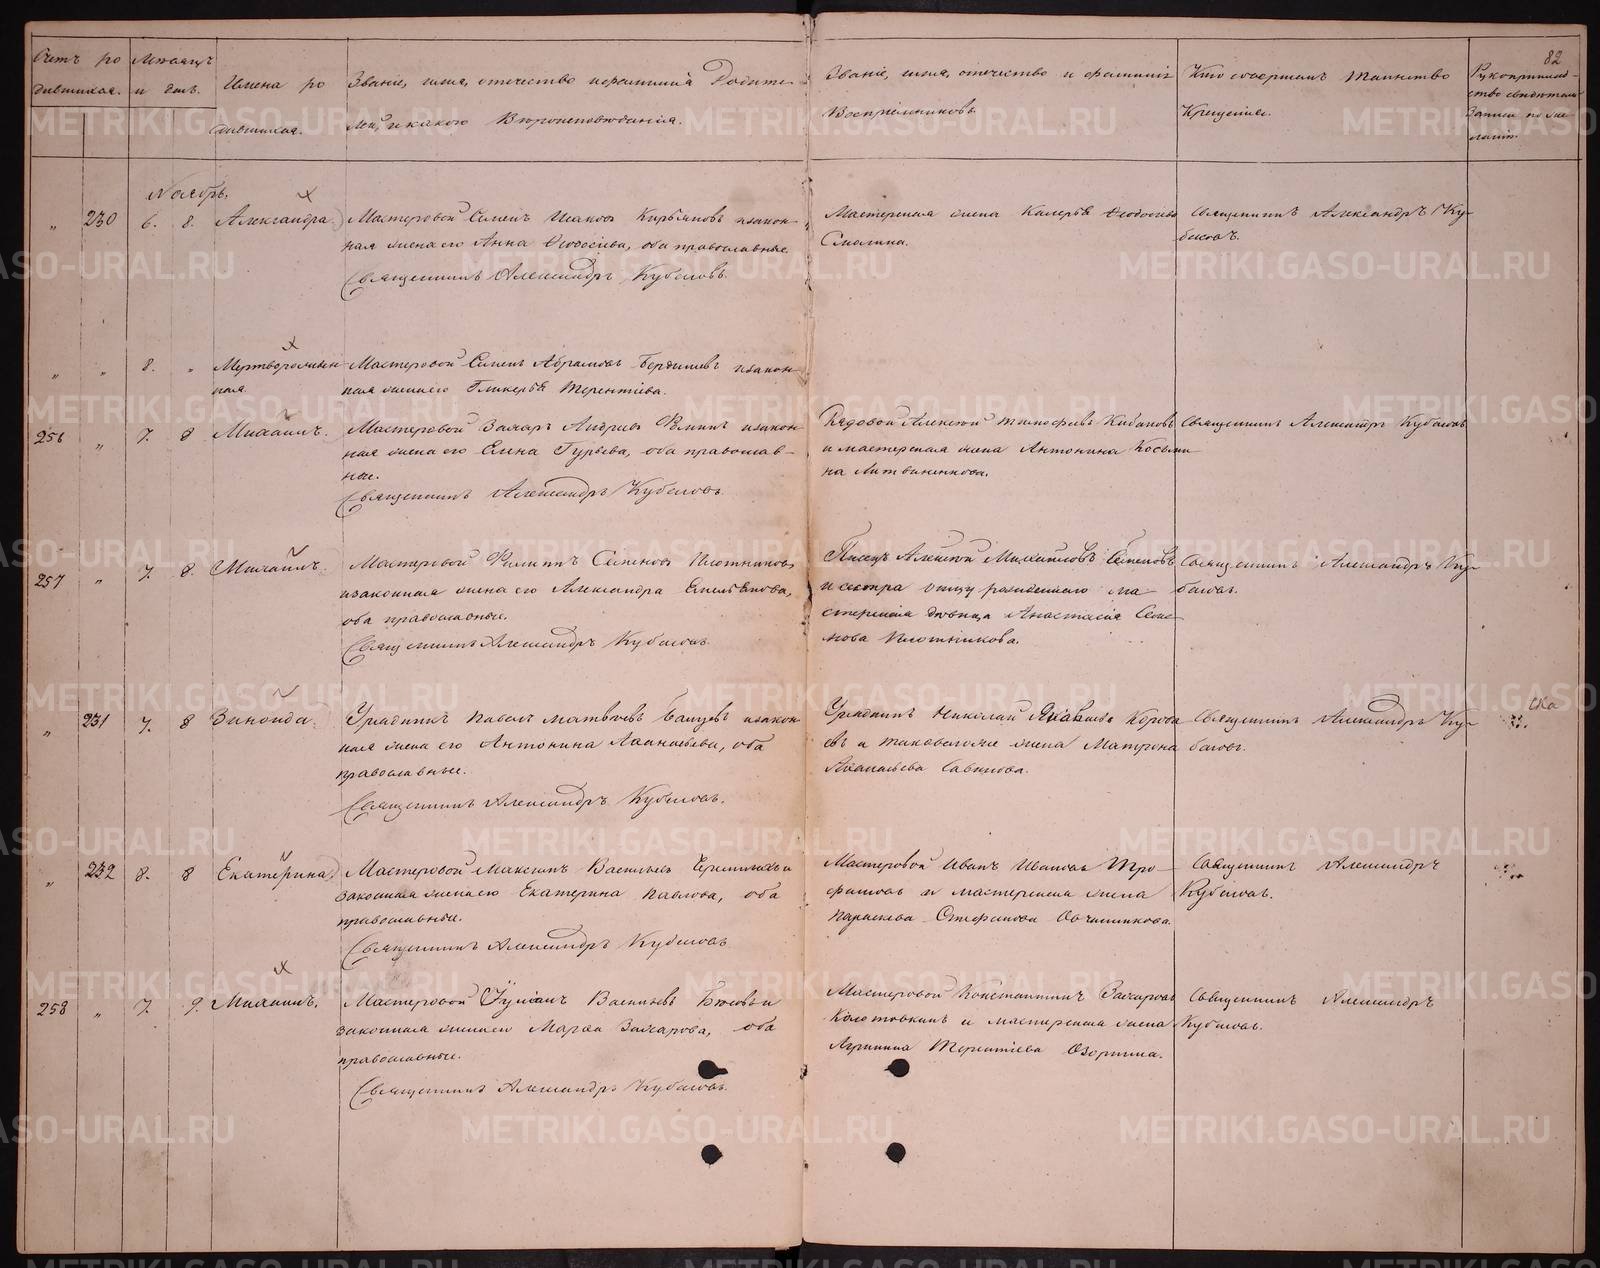 82
Счетъ ро
дившихся.
Мѣсяцъ
и день.
Имена ро
дившихся.
Званіе, имя, отчество и фамилія Родите-
лей, и какого Вѣроисповѣданія.
Званіе, имя, отчество и фамилія
Воспріемниковъ.
Кто совершалъ таинство
Крещенія.
Рукоприклад-
ство свидѣтелей
записи по же-
ланію.
Ноябрь.
„ 230 6. 8. Александра.
Мастеровой Семенъ Исаковъ Кирьяновъ и закон-
ная жена его Анна Ѳеодосіева, оба православные.
Священникъ Александръ Кубасовъ.
Мастерская жена Калерія Ѳеодосіева
Смагина.
Священникъ Александръ Ку-
басовъ.
„ „ 8. „ Мертворожден
ная
Мастеровой Семенъ Абрамовъ Бердышевъ и закон-
ная жена его Гликерія Терентіева.
256 „ 7. 8 Михаилъ.
Мастеровой Захаръ Андреевъ и закон-
ная жена его Елена Гурьева, оба православ-
ные.
Священникъ Александръ Кубасовъ.
Рядовой Алексей Тимофеевъ Кабановъ
и мастерская жена Антонина Косьми-
на Литвиненкова.
Священникъ Александръ Кубасовъ
257 „ 7. 8. Михаилъ.
Мастеровой Филиппъ Семеновъ Плотниковъ
и законная жена его Александра Емельянова,
оба православные.
Священникъ Александръ Кубасовъ.
Писецъ Алексей Михайловъ Семеновъ
и сестра отцу рожденнаго ма-
стерская дѣвица Анастасія Семе-
нова Плотникова.
Священникъ Александръ Ку-
басовъ.
„ 231 7. 8 Зинаида.
Урядникъ Павелъ Матвѣевъ и закон
ная жена его Антонина Аѳанасьева, оба
православные.
Священникъ Александръ Кубасовъ.
Урядникъ Николай Яковлевъ
и таковагоже жена Матрона
Аѳанасьева Савинова.
Священникъ Александръ Ку-
басовъ.
„ 232 8. 8 Екатерина.
Мастеровой Максимъ Васильевъ и
законная жена его Екатерина Павлова, оба
православные.
Священникъ Александръ Кубасовъ
Мастеровой Иванъ Ивановъ Тро-
фимовъ и мастерская жена
Параскева Стефанова Овчинникова.
Священникъ Александръ
Кубасовъ.
258 „ 7. 9. Михаилъ.
Мастеровой Іуліанъ Васильевъ и
законная жена его Марѳа Захарова, оба
православные.
Священникъ Александръ Кубасовъ.
Мастеровой Константинъ Захаровъ
Колотовкинъ и мастерская жена
Агрипина Терентіева Озорнина.
Священникъ Александръ
Кубасовъ.
METRIKI.GASO-URAL.RU